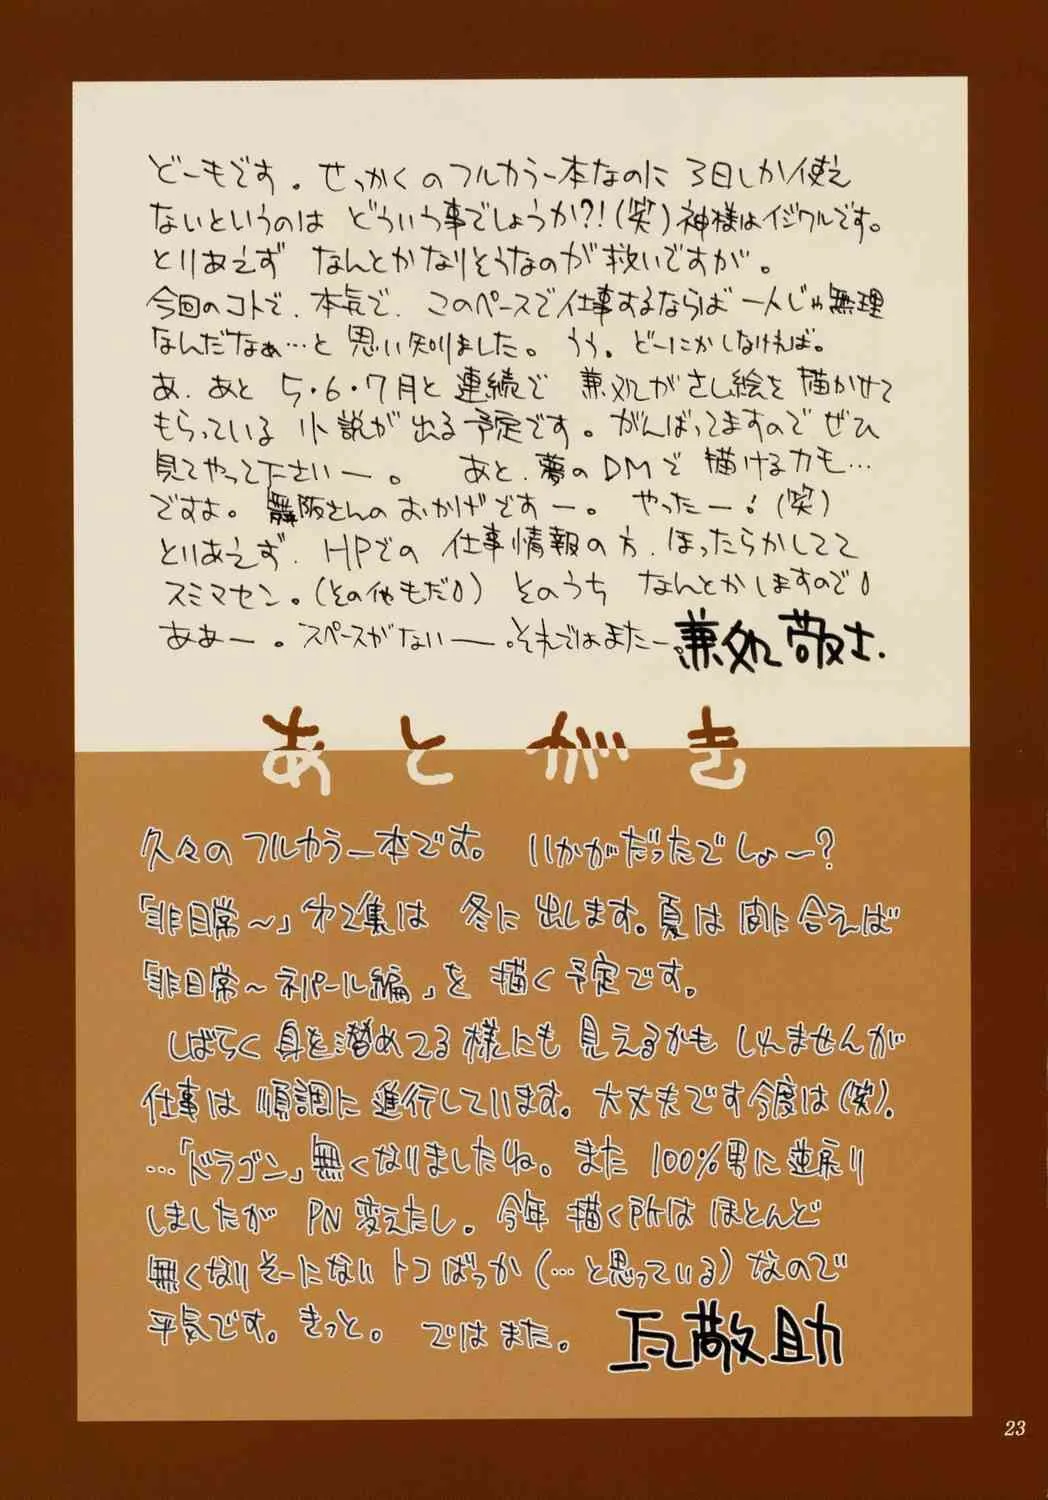 どーもです。せっかくのフルカラー本なのに 3日しか使え
ないというのは どういう事でしょうか?!(笑)神様はイジワルです。
とりあえず なんとかなりそうなのが救いですが。
今回のコトで、本気で、このペースで仕事するならば 一人じゃ無理
なんだなぁ…と 思い知りました。うぅ。どーにかしなければ。
あ、あと 5・6・7月と 連続で 兼処がさし絵を描かせて
もらっている 小説が出る予定です。がんばってますので ぜひ
見てやって下さいー。 あと、夢のDMで 描けるカモ…
ですよ。舞阪さんのおかげですー。 やったー!(笑)
とりあえず、HPでの 仕事情報の方、ほったらかしてて
スミマセン。(その他もだ〃) そのうち なんとかしますので〃
ああー。スペースがないー。それではまたー。兼処敬士.
あとがき
久々のフルカラー本です。 いかがだったでしょー?
「非日常〜」第2集は 冬に出します。夏は間に合えば
「非日常〜ネパール編」を 描く予定です。
しばらく 身を潜めてる様にも 見えるかも しれませんが
仕事は 順調に進行しています。大丈夫です今度は(笑)。
…「ドラゴン」無くなりましたね。また 100%男に逆戻り
しましたが PN変えたし。今年 描く所は ほとんど
無くなりそーにない トコばっか(…と思っている)なので
平気です。きっと。 ではまた。 瓦敬助
23